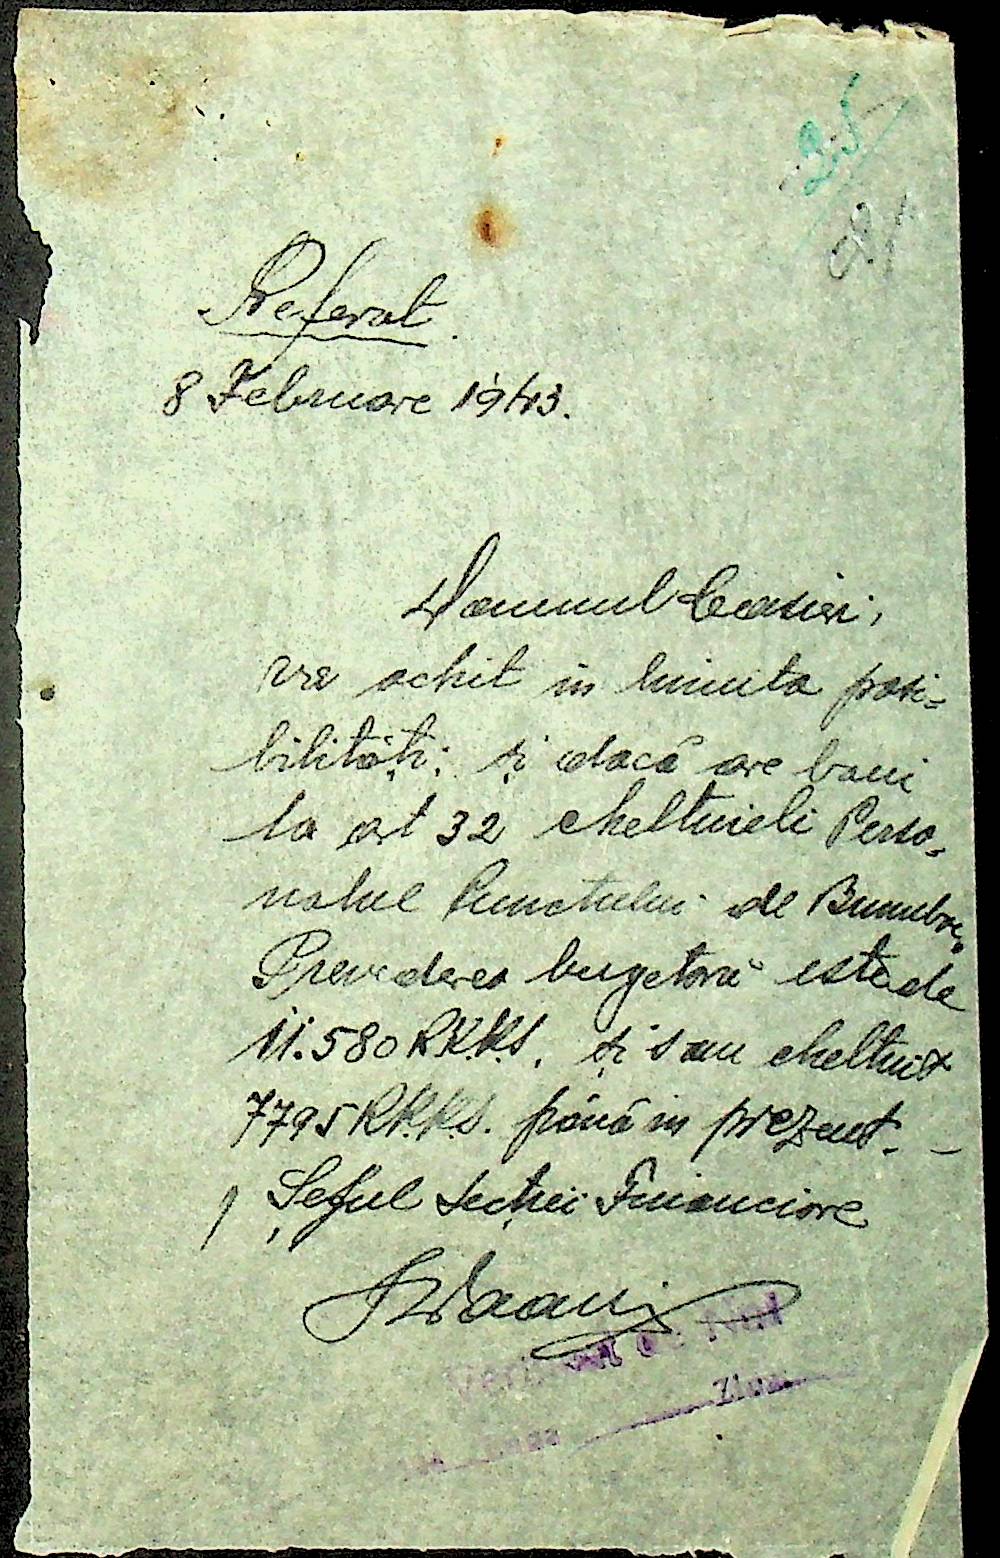 25
Referat.
8 Februare 1943.
Domnul Casier,
va achit in limita posi-
bilități; și dacă are bani
la art 32 cheltuieli Perso-
nalul Punctului de
Prevederea bugetară este de
11.580 RKKS, și s au cheltuit
7795 RKKS. până in prezent. -
Șeful Secției Financiare